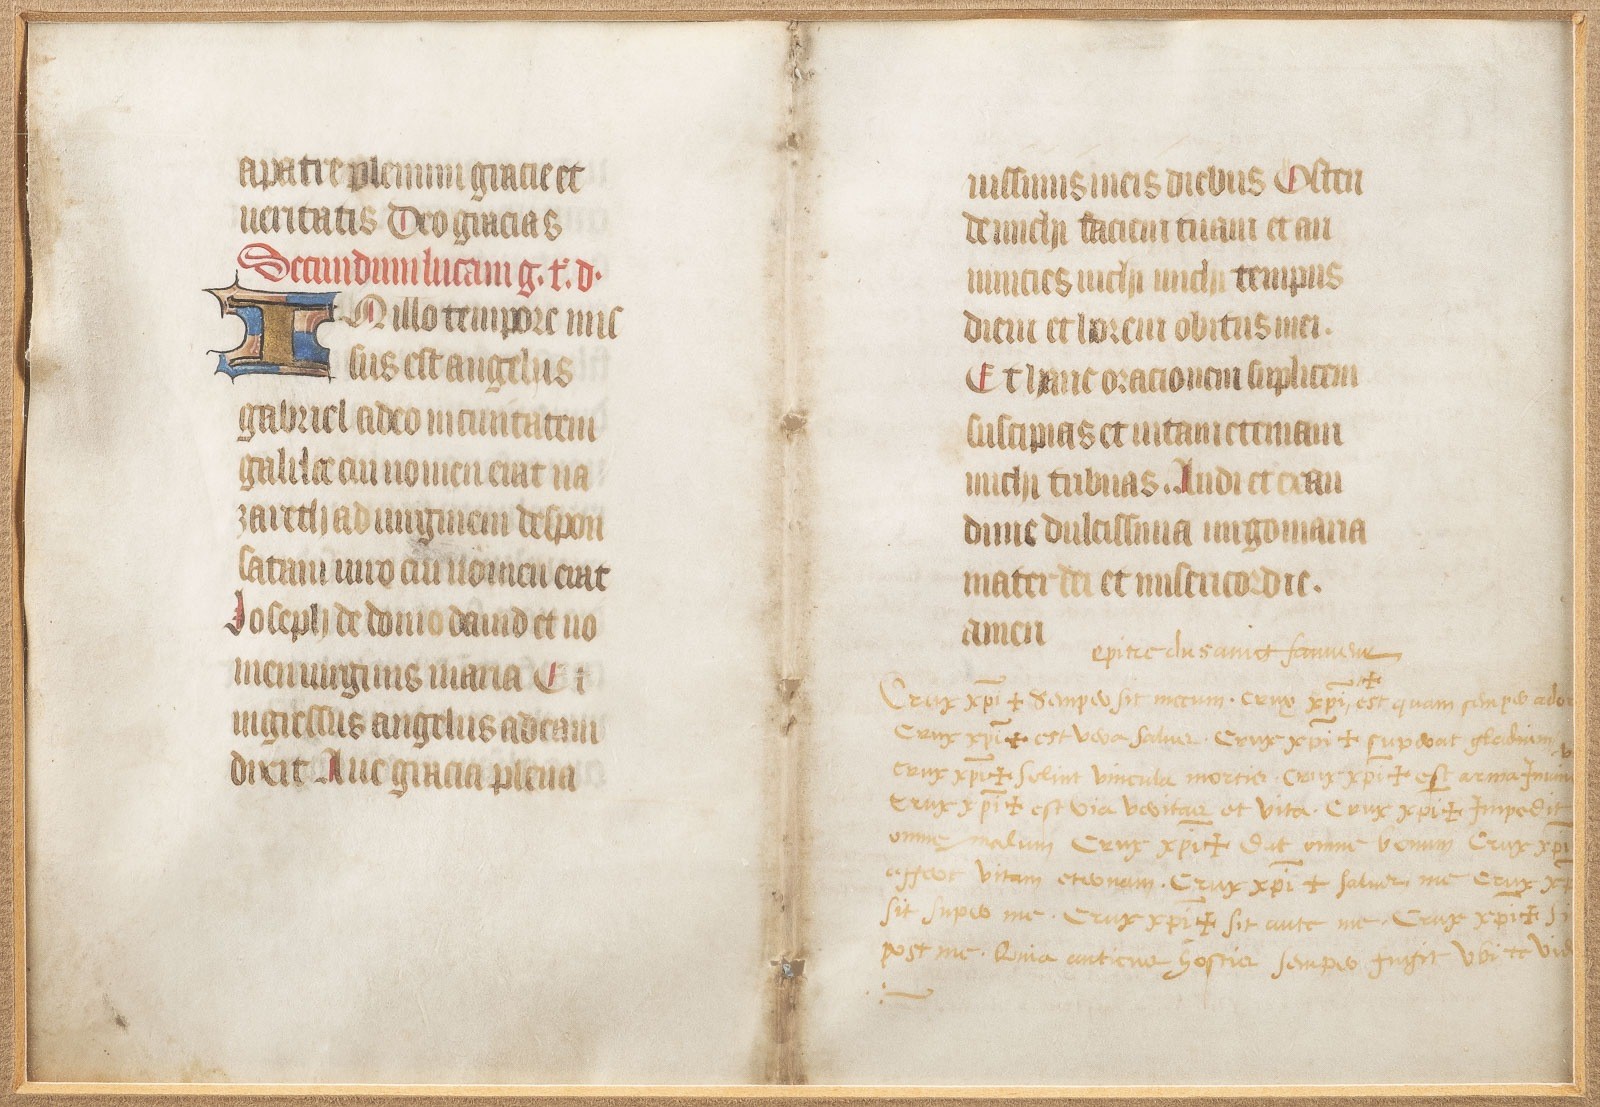 a patre plenum gracie et
ueritatis Deo gracias
Secundum lucam g. t. d.
IN illo tempore mis
sus est angelus
gabriel a deo in ciuitatem
galilee cui nomen erat na
zareth ad uirginem despon
satam uiro cui nomen erat
Joseph de domo dauid et no
men uirginis maria Et
ingressus angelus ad eam
dixit Aue gracia plena
uissimis meis diebus Osten
de michi faciem tuam et an
nuncies michi michi tempus
diem et horem obitus mei.
Et hanc oracionem suplicem
suscipias et uitam eternam
michi tribuas. Audi et exau
di me dulcissima uirgo maria
mater dei et misericordie.
amen
epitre du sainct
Crux xpi + Semper sit mecum. Crux xpi + est quam semper ador
Crux xpi + est vera salus. Crux xpi + superat gladium
Crux xpi + soluit vincula mortis. Crux xpi + est arma
Crux xpi + est via veritas et vita. Crux xpi + Impedit
omne malum Crux xpi + Dat omne bonum Crux xpi
affert vitam eternam. Crux xpi + salues me Crux xp
sit super me. Crux xpi + sit ante me. Crux xpi + si
post me. Quia anticus hostis semper fugit vbi te vid